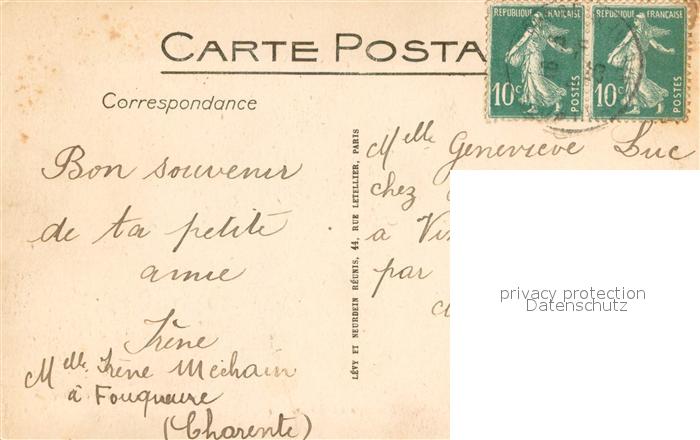 CARTE POSTA
RÉPUBLIQUE FRANÇAISE
10c POSTES
RÉPUBLIQUE FRANÇAISE
10c POSTES
Correspondance
Bon souvenir
de ta petite
amie
Irène
Melle Irène Mechain
à Fouqueure
(Charente)
LÉVY ET NEURDEIN RÉUNIS, 44, RUE LETELLIER, PARIS
Melle Geneviève Luc
chez
à
par
privacy protection
Datenschutz